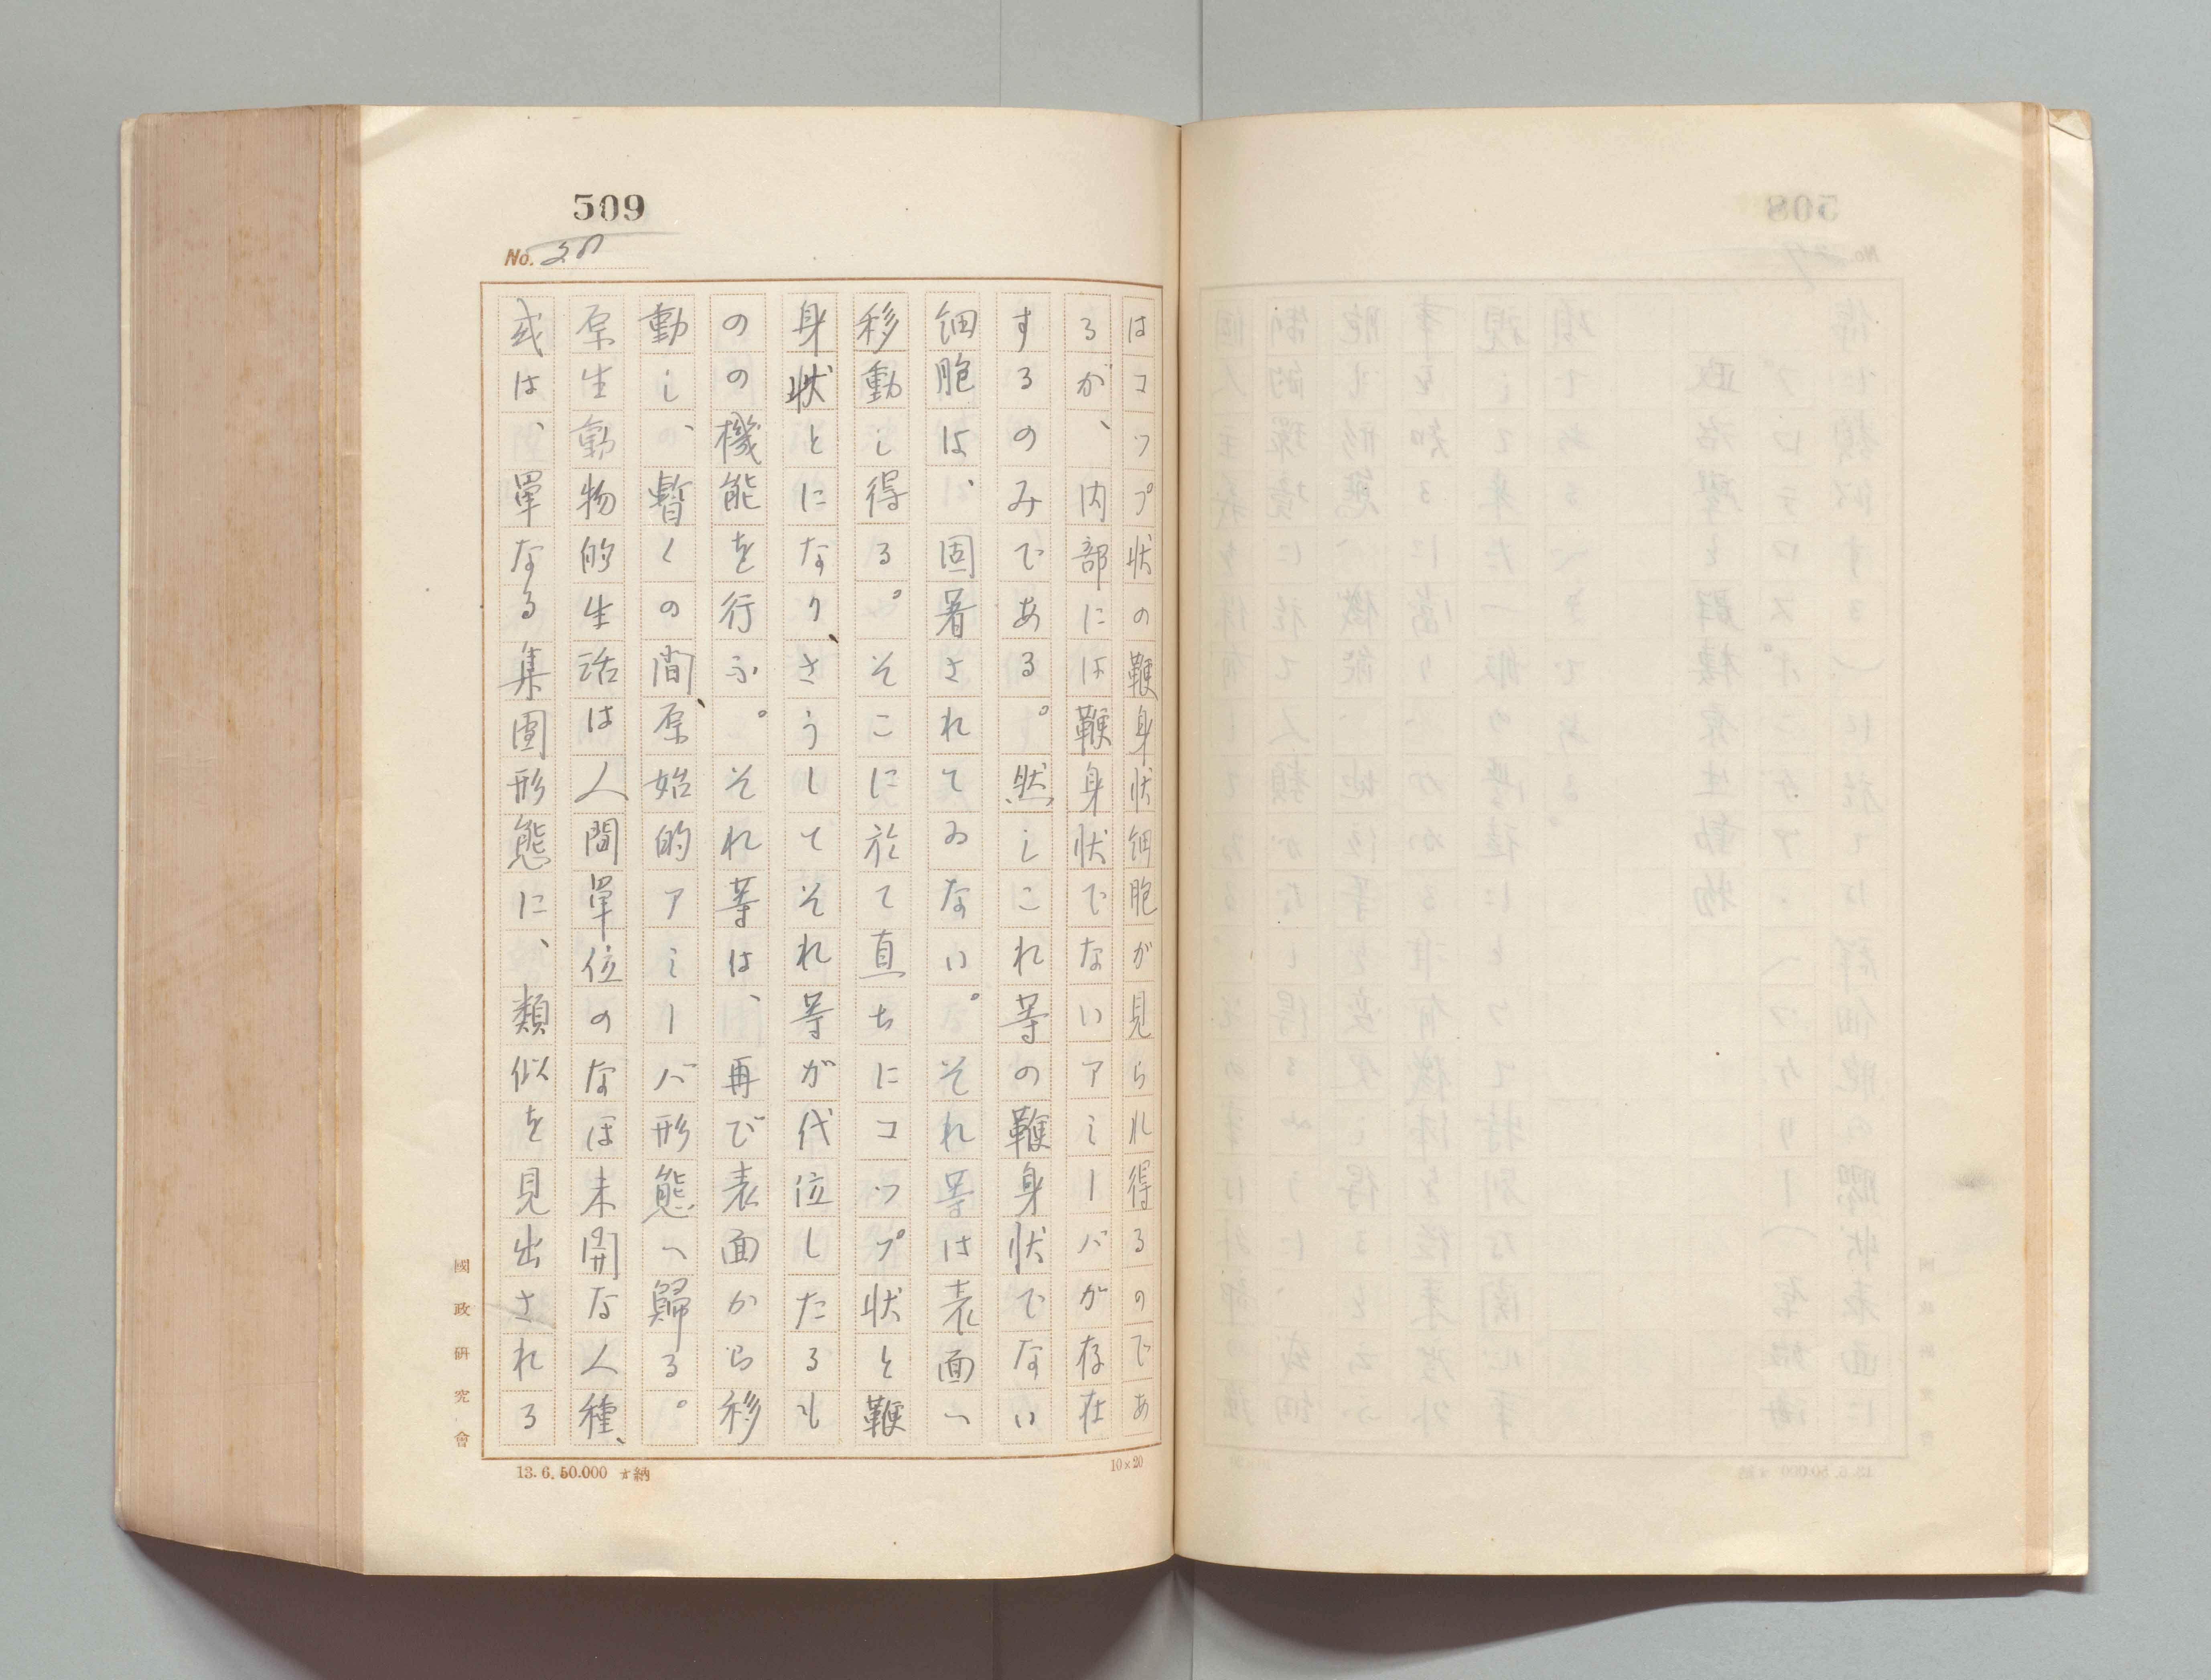 509
No. 28
はコップ状の鞭身状細胞が見られ得るのであ
るが、内部には鞭身状でないアミーバが存在
するのみである。然しこれ等の鞭身状でない
細胞は、固着されてゐない。それ等は表面へ
移動し得る。そこに於て直ちにコップ状と鞭
身状とになり、さうしてそれ等が代位したるも
のの機能を行ふ。それ等は、再び表面から移
動し、暫くの間、原始的アミーバ形態へ歸る。
原生動物的生活は人間單位のなほ未開な人種、
或は、單なる集團形態に、類似を見出される
國政研究會
13.6.50.000 納
10×20